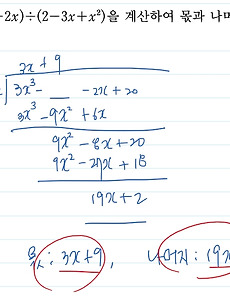 +2x)÷(2−3x+x²)을 계산하여 몫과 나머
3x + 9
3x³ − __ − 2x + 20
3x³ − 9x² + 6x
9x² − 8x + 20
9x² − 27x + 18
19x + 2
몫 : 3x+9 , 나머지 : 19x